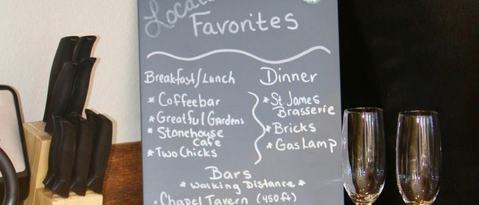 Favorites
Breakfast/Lunch
* Coffeebar
* Greatful Gardens
* Stonehouse
Cafe
* Two Chicks
Dinner
* St James
Brasserie
* Bricks
* Gas Lamp
Bars
* Walking Distance *
* Chapel Tavern (450ft)